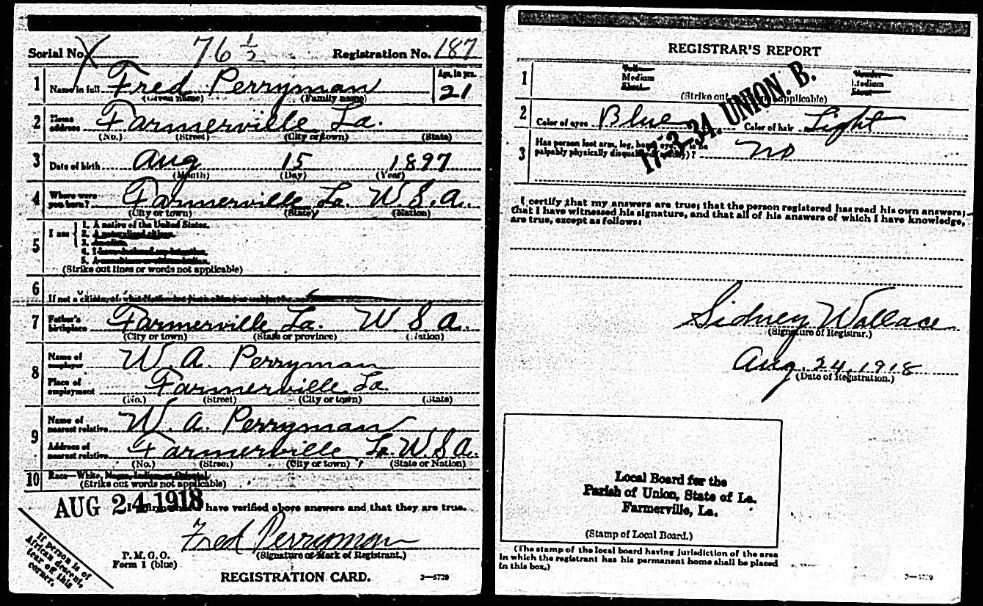 Serial No. X 76 1/2 Registration No. 187
1 Name in full Fred Perryman Age, in yrs. 21
(Given name) (Family name)
2 Home address Farmerville La.
(No.) (Street) (City or town) (State)
3 Date of birth Aug 15 1897
(Month) (Day) (Year)
4 Where were you born? Farmerville La. U.S.A.
(City or town) (State) (Nation)
5 I am
1. A native of the United States.
2. A naturalized citizen.
3. An alien.
4. I have declared my intention.
5.
(Strike out lines or words not applicable)
6 If not a citizen, of what Nation are you a citizen or subject?
7 Father's birthplace Farmerville La. U S A.
(City or town) (State or province) (Nation)
8 Name of employer W. A. Perryman
Place of employment Farmerville La
(No.) (Street) (City or town) (State)
9 Name of nearest relative W. A. Perryman
Address of nearest relative Farmerville La. U S A.
(No.) (Street) (City or town) (State or Nation)
10 Race—White, Negro, Indian, or Oriental.
(Strike out words not applicable)
AUG 24 1918
I affirm that I have verified above answers and that they are true.
Fred Perryman
(Signature or Mark of Registrant.)
P. M. G. O.
Form 1 (blue)
REGISTRATION CARD. 3—5729
If person is of
African descent,
tear off this
corner.
REGISTRAR'S REPORT
1 Tall Slender
Medium Medium
Short Stout
(Strike out words not applicable)
17-2-34. UNION. B.
2 Color of eyes Blue Color of hair Light
3 Has person lost arm, leg, hand, eye, or to be
palpably physically disqualified (specify)? no
I certify that my answers are true; that the person registered has read his own answers;
that I have witnessed his signature, and that all of his answers of which I have knowledge,
are true, except as follows:
Sidney Wallace
(Signature of Registrar.)
Aug. 24, 1918
(Date of Registration.)
Local Board for the
Parish of Union, State of La.
Farmerville, La.
(Stamp of Local Board.)
(The stamp of the local board having jurisdiction of the area
in which the registrant has his permanent home shall be placed
in this box.) 3—5729